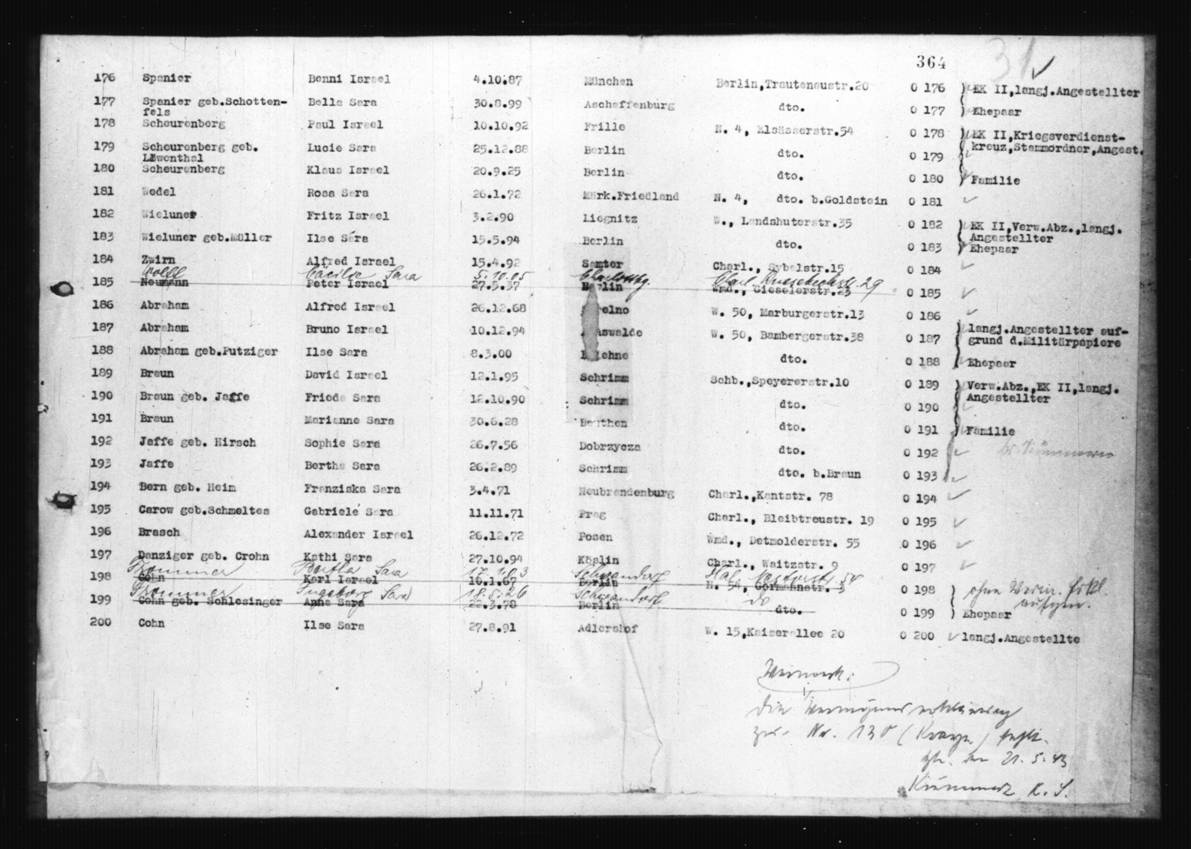 364
31
176 Spanier Benni Israel 4.10.87 München Berlin,Trautenaustr.20 0 176 EK II,langj.Angestellter
177 Spanier geb.Schotten- Bella Sara 30.8.99 Aschaffenburg dto. 0 177 Ehepaar
fels
178 Scheurenberg Paul Israel 10.10.92 Frille N. 4, Elsässerstr.54 0 178 EK II,Kriegsverdienst-
kreuz,Stammordner,Angest.
179 Scheurenberg geb. Lucie Sara 25.12.88 Berlin dto. 0 179
Löwenthal
180 Scheurenberg Klaus Israel 20.9.25 Berlin dto. 0 180 Familie
181 Wedel Rosa Sara 26.1.72 Märk.Friedland N. 4, dto. b.Goldstein 0 181
182 Wieluner Fritz Israel 3.2.90 Liegnitz W., Landshuterstr.35 0 182 EK II,Verw.Abz.,langj.
Angestellter
183 Wieluner geb.Müller Ilse Sara 15.5.94 Berlin dto. 0 183 Ehepaar
184 Zwirn Alfred Israel 15.4.92 Samter Charl., Sybelstr.15 0 184
Wolff Cäcilie Sara 5.10.05 Charlottbg. Charl. 29
185 Neumann Peter Israel 27.5.37 Berlin Wmd., Gieselerstr.23 0 185
186 Abraham Alfred Israel 26.12.68 elno W. 50, Marburgerstr.13 0 186
187 Abraham Bruno Israel 10.12.94 nswalde W. 50, Bambergerstr.38 0 187 langj.Angestellter auf-
grund d.Militärpapiere
188 Abraham geb.Putziger Ilse Sara 8.3.00 lehne dto. 0 188 Ehepaar
189 Braun David Israel 12.1.95 Schrimm Schb.,Speyererstr.10 0 189 Verw.Abz.,EK II,langj.
Angestellter
190 Braun geb. Jaffe Frieda Sara 12.10.90 Schrimm dto. 0 190
191 Braun Marianne Sara 30.6.28 Beuthen dto. 0 191 Familie
192 Jaffe geb. Hirsch Sophie Sara 26.7.56 Dobrzycza dto. 0 192
193 Jaffe Bertha Sara 26.2.89 Schrimm dto. b.Braun 0 193
194 Bern geb. Heim Franziska Sara 3.4.71 Neubrandenburg Charl.,Kantstr. 78 0 194
195 Carow geb.Schmeltes Gabriele Sara 11.11.71 Prag Charl., Bleibtreustr. 19 0 195
196 Brasch Alexander Israel 26.12.72 Posen Wmd., Detmolderstr. 55 0 196
197 Danziger geb. Crohn Kathi Sara 27.10.94 Köslin Charl., Waitzstr. 9 0 197
Brommer Bertha Sara Schwandorf
198 Cohn Karl Israel 16.1.67 Berlin N. 54, Gormannstr. 3 0 198 ohne Verm. Erkl.
Brommer Ingeborg Sara 18.5.26 Schwandorf do
199 Cohn geb. Schlesinger Anna Sara 22.3.78 Berlin dto. 0 199 Ehepaar
200 Cohn Ilse Sara 27.8.91 Adlershof W. 15,Kaiserallee 20 0 200 langj.Angestellte
Vermerk:
Die Vermögenserklärung
zu Nr. 130 fehlt.
den 21.5.43
K.S.